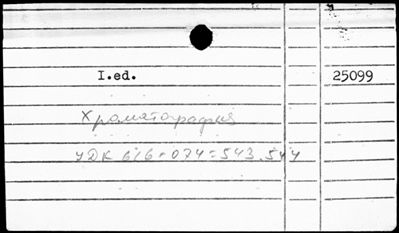 I.ed. 25099
Хроматография
УДК 616-074=543.544